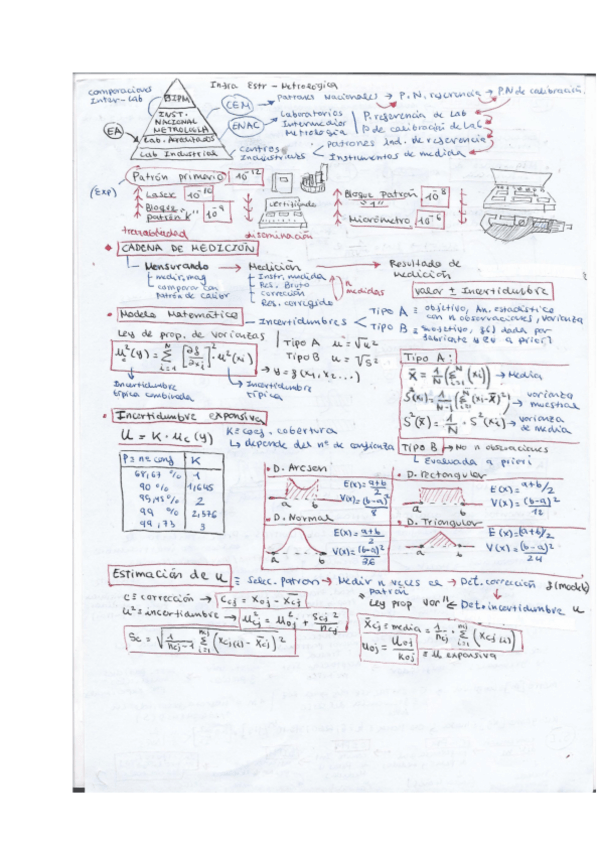 Infra Estr - Metrologica
comparaciones
Inter-Lab
BIPM
CEM
Patrones Nacionales → P. N. referencia → P.N de calibración
INST.
NACIONAL
METROLOGIA
ENAC
Laboratorios
Intermedios
Metrologia
P. referencia de Lab
P. de calibración de Lab
EA
Lab. Acreditados
Lab Industrial
centros
Industriales
patrones Ind. de referencia
Instrumentos de medida
Patrón primario 10⁻¹²
(Exp)
Laser 10⁻¹⁰
Bloque patrón "K" 10⁻⁹
certificado
Bloque Patrón "1" 10⁻⁸
Micrómetro 10⁻⁶
trazabilidad
diseminación
CADENA DE MEDICIÓN
Mensurando → Medición → Resultado de medición
medir, mag
comparar con
Patrón de calibr
Instr. medida
Res. Bruto
corrección
Res. corregido
n medidas
valor ± Incertidumbre
Modelo Matemático
Incertidumbres
Tipo A ≡ objetivo, An. estadístico
con n observaciones, varianza
Tipo B ≡ subjetivo, dada por
fabricante a priori
Ley de prop. de varianzas
Tipo A
Tipo B
u²c(y) = Σ i=1 N [∂f/∂xi]² · u²(xi)
→ y = f(x1, x2...)
Incertidumbre
típica combinada
Incertidumbre
típica
Tipo A:
X̄ = 1/N (Σ i=1 N (xi)) → Media
S²(xi) = 1/N-1 (Σ i=1 N (xi - X̄)²) → varianza muestral
S²(x̄) = 1/N · S²(xi) → varianza de media
Incertidumbre expansiva
U = K · uc(y)
K ≡ coef. cobertura
↳ depende del nº de confianza
Tipo B → No n observaciones
↳ Evaluada a priori
P ≡ nº conf K
68,67 % 1
90 % 1,645
95,45 % 2
99 % 2,576
99,73 3
D. Arcsen
a b
E(x) = a+b/2
V(x) = (b-a)²/8
D. Rectangular
a b
E(x) = a+b/2
V(x) = (b-a)²/12
D. Normal
a b
E(x) = a+b/2
V(x) = (b-a)²/36
D. Triangular
a b
E(x) = (a+b)/2
V(x) = (b-a)²/24
Estimación de U ≡ Selec. Patrón → Medir n veces el patrón → Det. corrección f(model)
Ley prop var ← Det. incertidumbre U
C ≡ corrección → Ccj = xoj - x̄cj
u² ≡ incertidumbre → u²cj = u²oj + Scj²/ncj
Sc = √(1/ncj-1 Σ i=1 ncj (xcj(i) - x̄cj)²)
x̄cj ≡ media = 1/ncj · Σ i=1 ncj (xcj(i))
uoj = Uoj/Koj ≡ U expansiva